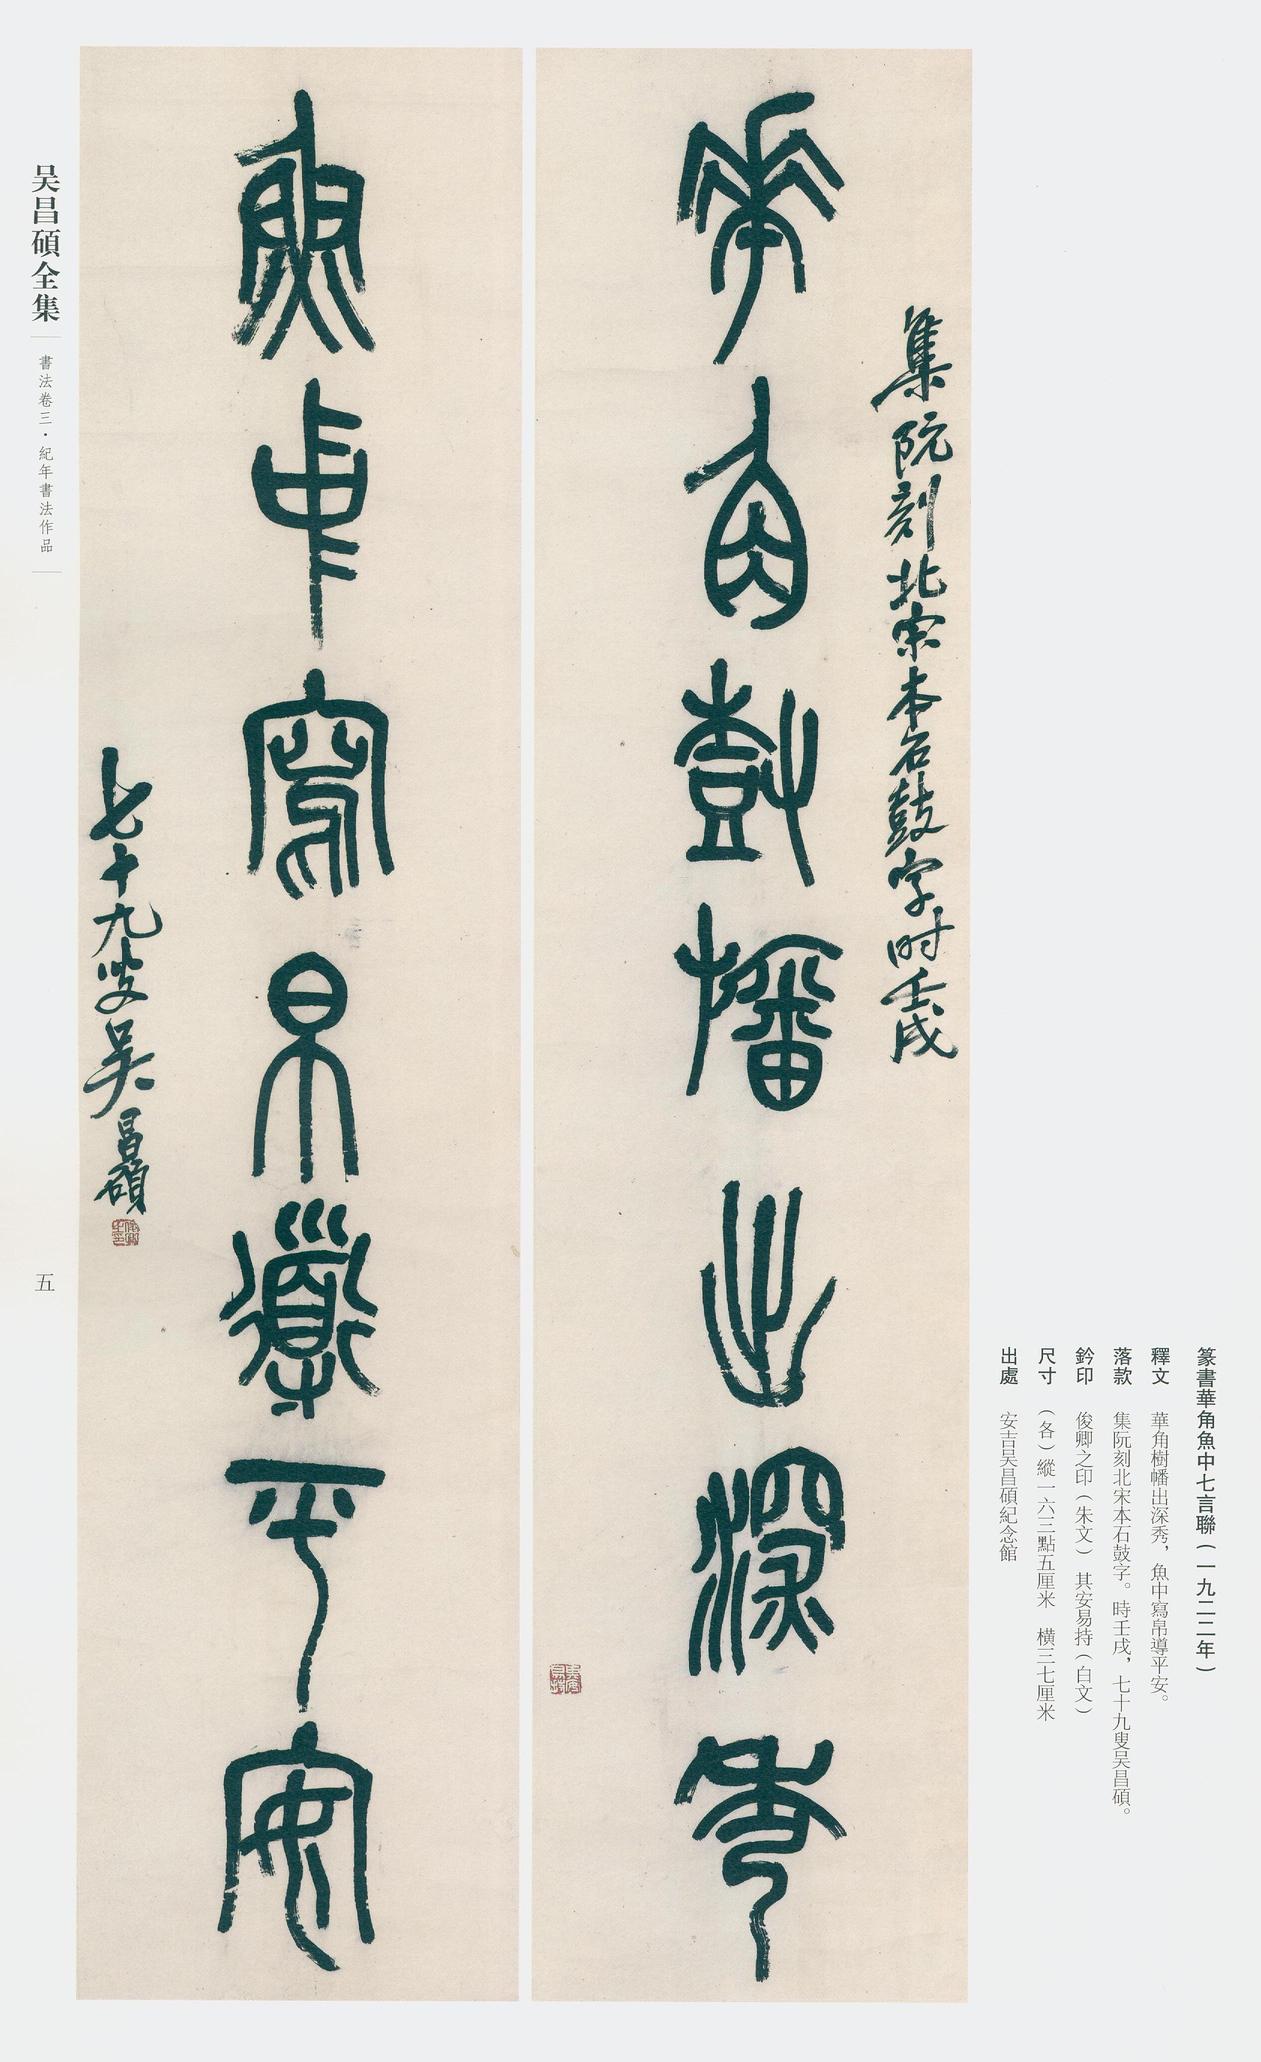 篆書華角魚中七言聯（一九二二年）
釋文　華角樹幡出深秀，魚中寫帛導平安。
落款　集阮刻北宋本石鼓字。時壬戌，七十九叟吴昌碩。
鈐印　俊卿之印（朱文）　其安易持（白文）
尺寸　（各）縱一六三點五厘米　橫三七厘米
出處　安吉吴昌碩紀念館
集阮刻北宋本石鼓字时壬戌
華角樹幡出深秀
其安易持
魚中寫帛導平安
七十九叟吴昌碩
俊卿之印
吴昌碩全集
書法卷三·紀年書法作品
五